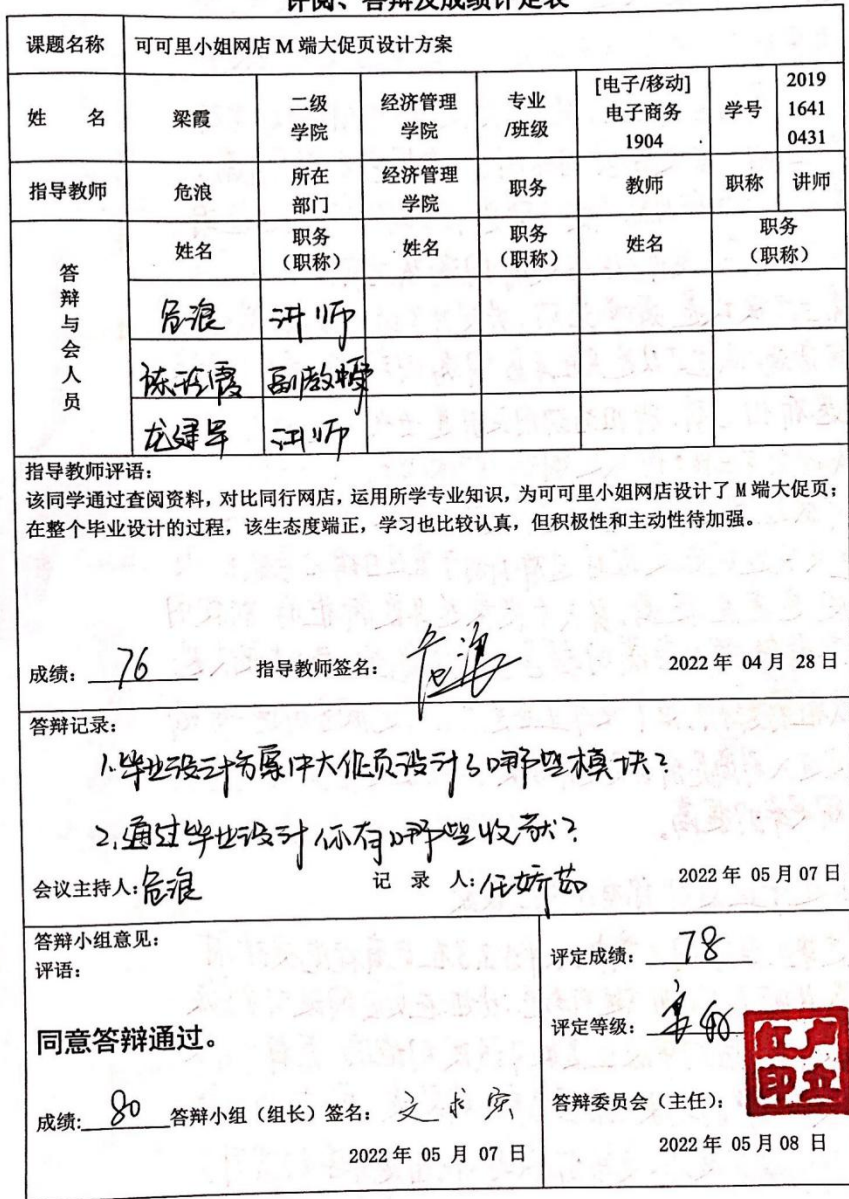 评阅、答辩及成绩评定表
课题名称 可可里小姐网店 M 端大促页设计方案
姓 名 梁霞 二级学院 经济管理学院 专业/班级 [电子/移动]电子商务1904 学号 201916410431
指导教师 危浪 所在部门 经济管理学院 职务 教师 职称 讲师
答辩与会人员 姓名 职务（职称） 姓名 职务（职称） 姓名 职务（职称）
危浪 讲师
副教授
龙建军 讲师
指导教师评语：
该同学通过查阅资料，对比同行网店，运用所学专业知识，为可可里小姐网店设计了 M 端大促页；
在整个毕业设计的过程，该生态度端正，学习也比较认真，但积极性和主动性待加强。
成绩： 76 指导教师签名： 危浪 2022 年 04 月 28 日
答辩记录：
1.毕业设计方案中大促页设计了哪些模块？
2.通过毕业设计你有哪些收获？
会议主持人：危浪 记 录 人：任娇茹 2022 年 05 月 07 日
答辩小组意见：
评语：
同意答辩通过。
成绩: 80 答辩小组（组长）签名： 文求实
2022 年 05 月 07 日
评定成绩： 78
评定等级：
答辩委员会（主任）： 卢立红印
2022 年 05 月 08 日